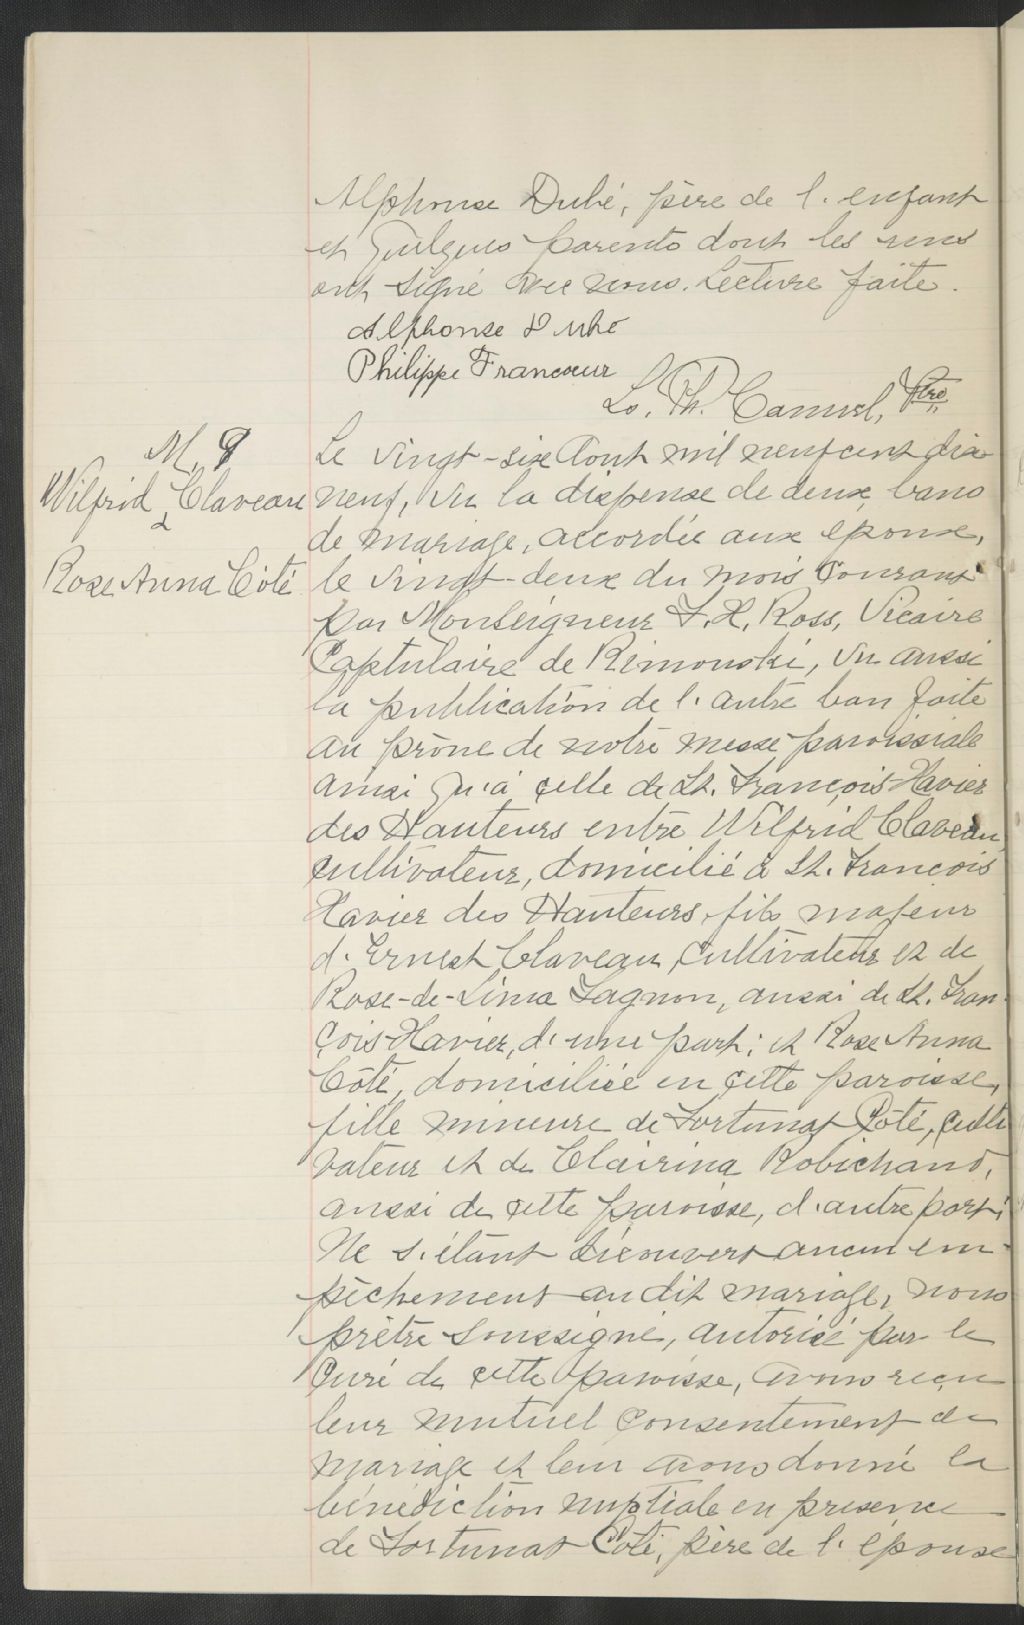 Alphonse Dubé, père de l'enfant
et quelques parents dont les uns
ont signé avec nous. Lecture faite.
Alphonse Dubé
Philippe Francoeur
Ls. Ph. Camuel, Ptre,
M. 8
Wilfrid Claveau
&
Rose Anna Côté
Le vingt-six Aout mil neuf cent dix
neuf, vu la dispense de deux bans
de mariage, accordée aux époux,
le vingt-deux du mois courant
par Monseigneur F. X. Ross, Vicaire
Captulaire de Rimouski, vu aussi
la publication de l'autre ban faite
au prône de notre messe paroissiale
ainsi qu'à celle de St. François-Xavier
des Hauteurs entre Wilfrid Claveau,
cultivateur, domicilié à St. François
Xavier des Hauteurs, fils majeur
d'Ernest Claveau, cultivateur et de
Rose-de-Lima Gagnon, aussi de St. Fran-
çois-Xavier, d'une part; et Rose Anna
Côté, domiciliée en cette paroisse,
fille mineure de Fortunat Côté, culti
vateur et de Clairina Robichaud,
aussi de cette paroisse, d'autre part;
Ne s'étant découvert aucun em-
pêchement au dit mariage, nous
prêtre soussigné, autorisé par le
Curé de cette paroisse, avons reçu
leur mutuel consentement de
mariage et leur avons donné la
bénédiction nuptiale en présence
de Fortunat Côté, père de l'épouse